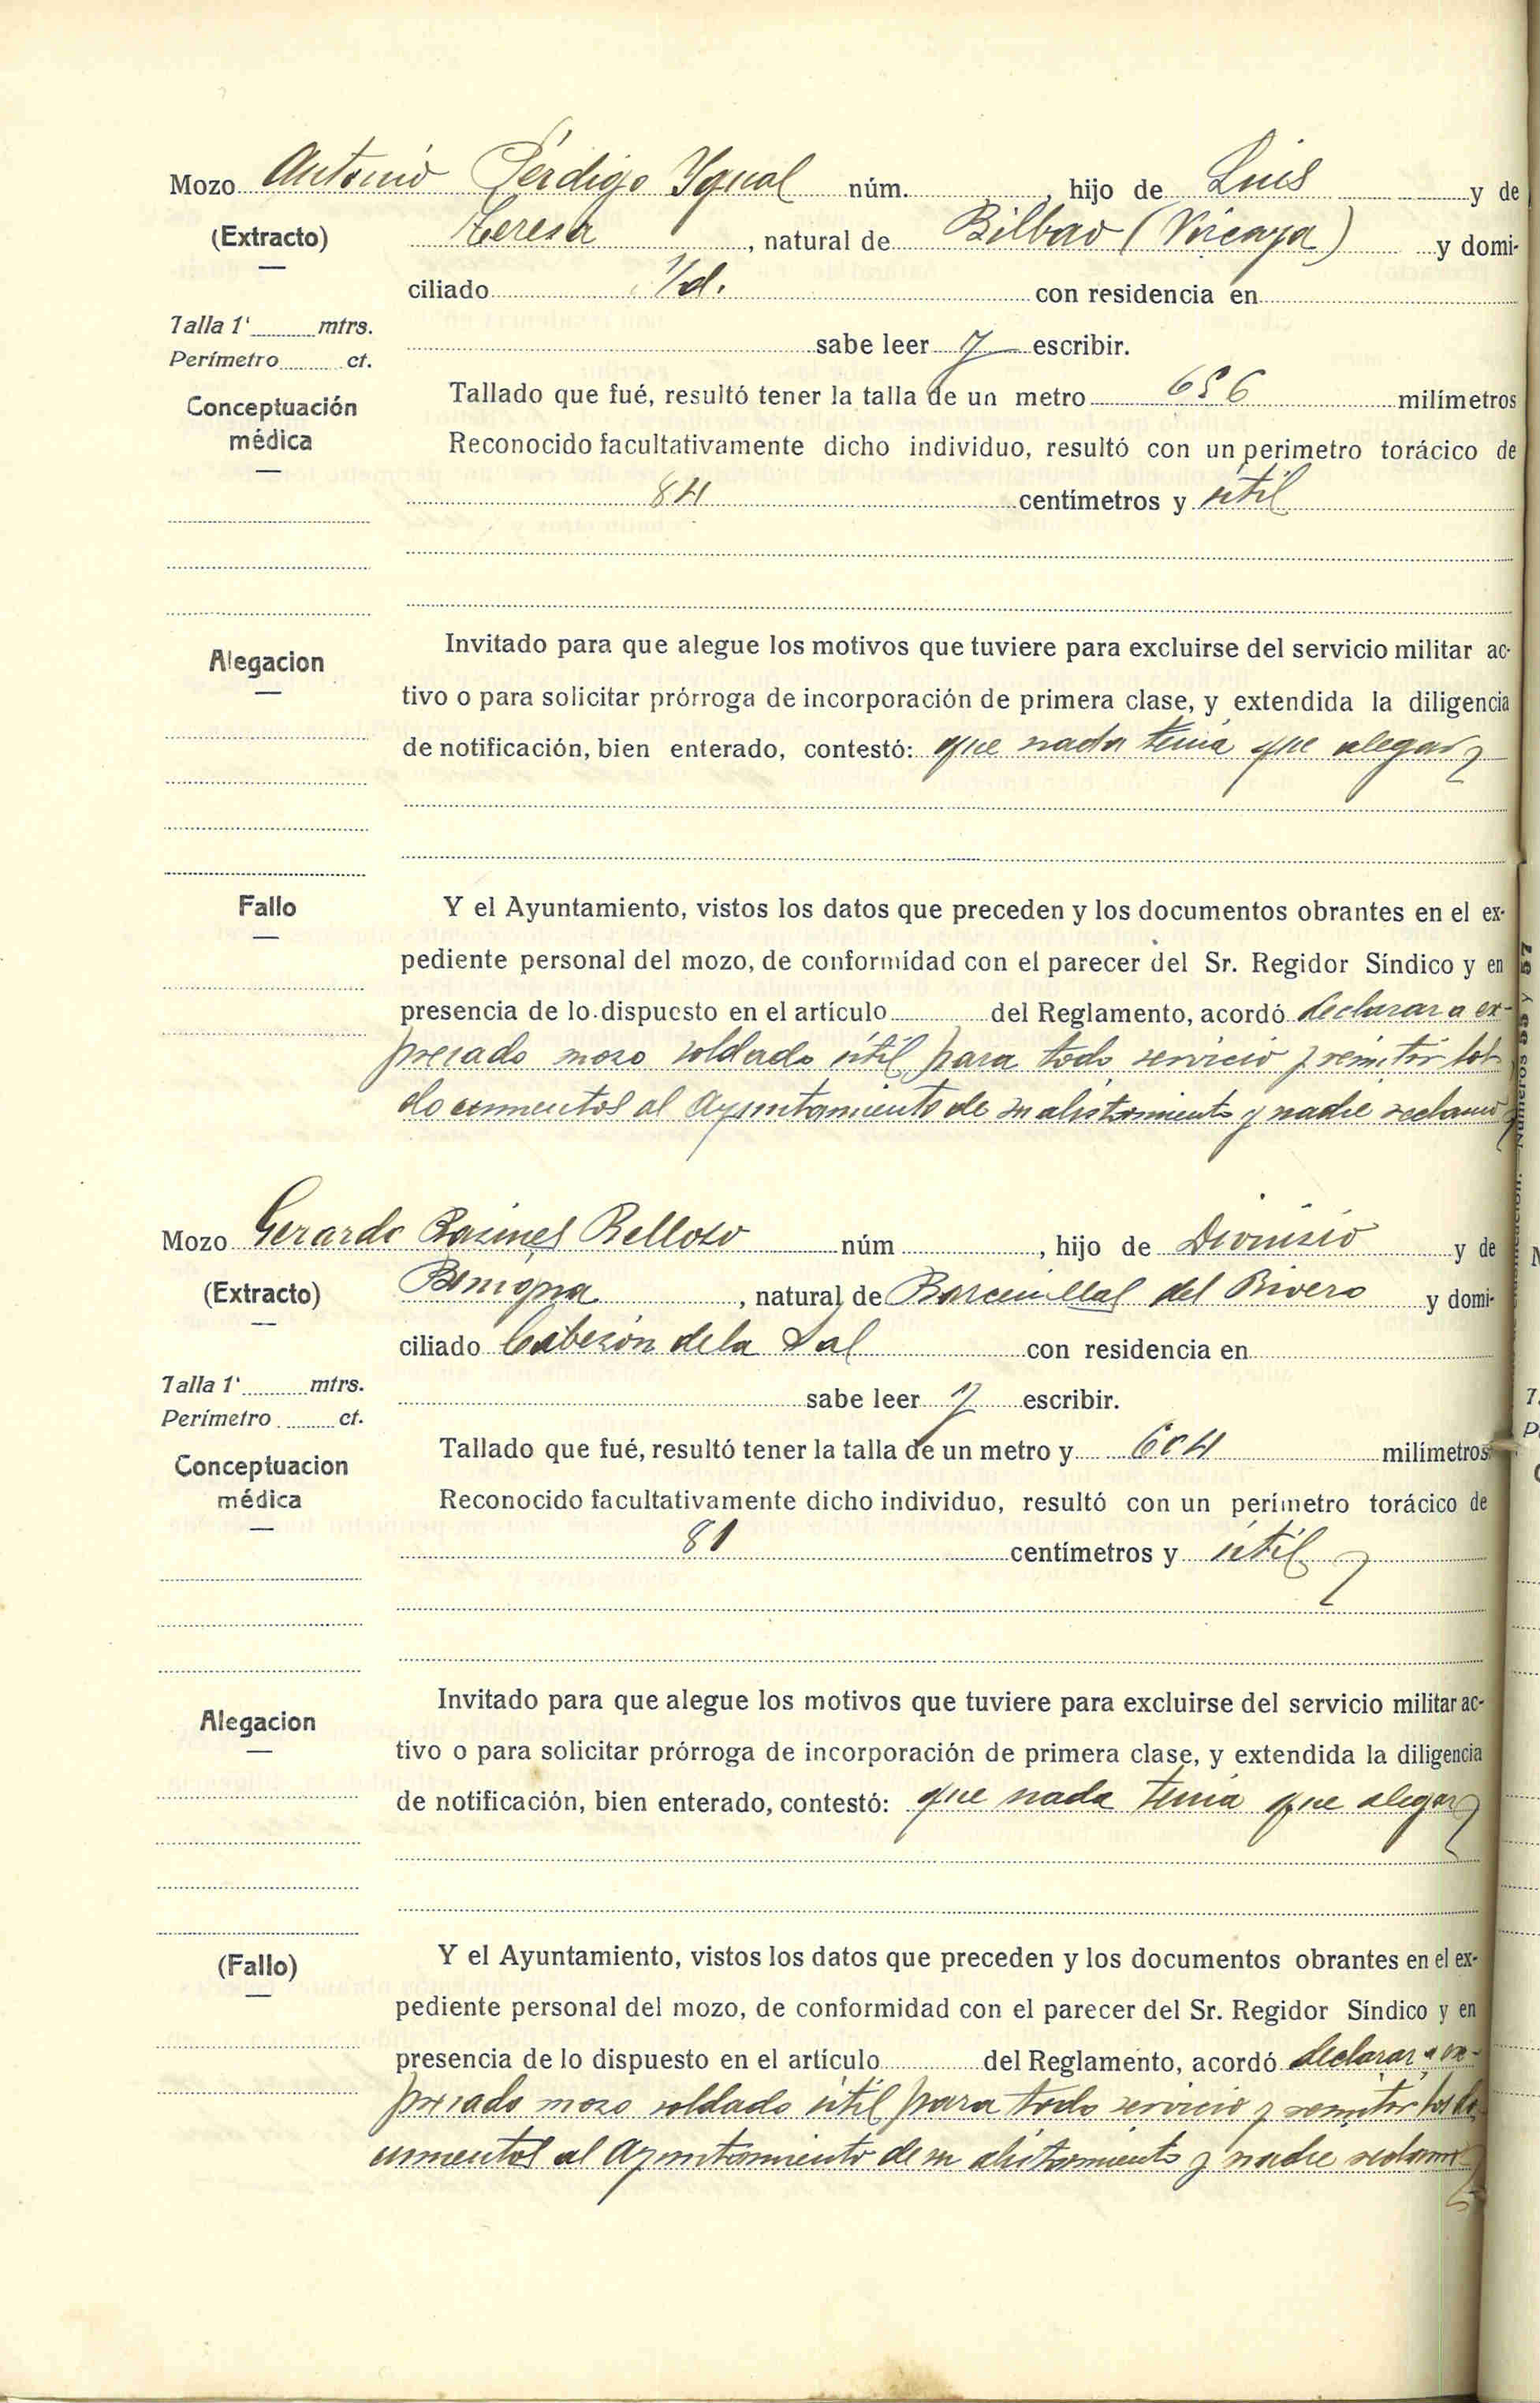 Mozo Antonio Pérdigo Ygual núm. , hijo de Luis y de
(Extracto) Teresa , natural de Bilbao (Vizcaya) y domi-
ciliado Id. con residencia en
Talla 1' mtrs.
sabe leer y escribir.
Perímetro ct.
Tallado que fué, resultó tener la talla de un metro 656 milímetros
Conceptuación
médica
Reconocido facultativamente dicho individuo, resultó con un perimetro torácico de
84 centímetros y útil
Alegacion
Invitado para que alegue los motivos que tuviere para excluirse del servicio militar ac-
tivo o para solicitar prórroga de incorporación de primera clase, y extendida la diligencia
de notificación, bien enterado, contestó: que nada tenia que alegar
Fallo
Y el Ayuntamiento, vistos los datos que preceden y los documentos obrantes en el ex-
pediente personal del mozo, de conformidad con el parecer del Sr. Regidor Síndico y en
presencia de lo dispuesto en el artículo del Reglamento, acordó declarar a ex-
presado mozo soldado útil para todo servicio y remitir los
documentos al Ayuntamiento de su alistamiento y nadie reclamó
Mozo Gerardo Rasines Belloso núm , hijo de Dionisio y de
(Extracto) Benigna , natural de Barcenillas del Rivero y domi-
ciliado Cabezón de la Sal con residencia en
Talla 1' mtrs.
sabe leer y escribir.
Perímetro ct.
Tallado que fué, resultó tener la talla de un metro y 604 milímetros
Conceptuacion
médica
Reconocido facultativamente dicho individuo, resultó con un perímetro torácico de
81 centímetros y útil
Alegacion
Invitado para que alegue los motivos que tuviere para excluirse del servicio militar ac-
tivo o para solicitar prórroga de incorporación de primera clase, y extendida la diligencia
de notificación, bien enterado, contestó: que nada tenia que alegar
(Fallo)
Y el Ayuntamiento, vistos los datos que preceden y los documentos obrantes en el ex-
pediente personal del mozo, de conformidad con el parecer del Sr. Regidor Síndico y en
presencia de lo dispuesto en el artículo del Reglamento, acordó declarar a ex-
presado mozo soldado útil para todo servicio y remitir los do
cumentos al Ayuntamiento de su alistamiento y nadie reclamó
Números 55 y 57